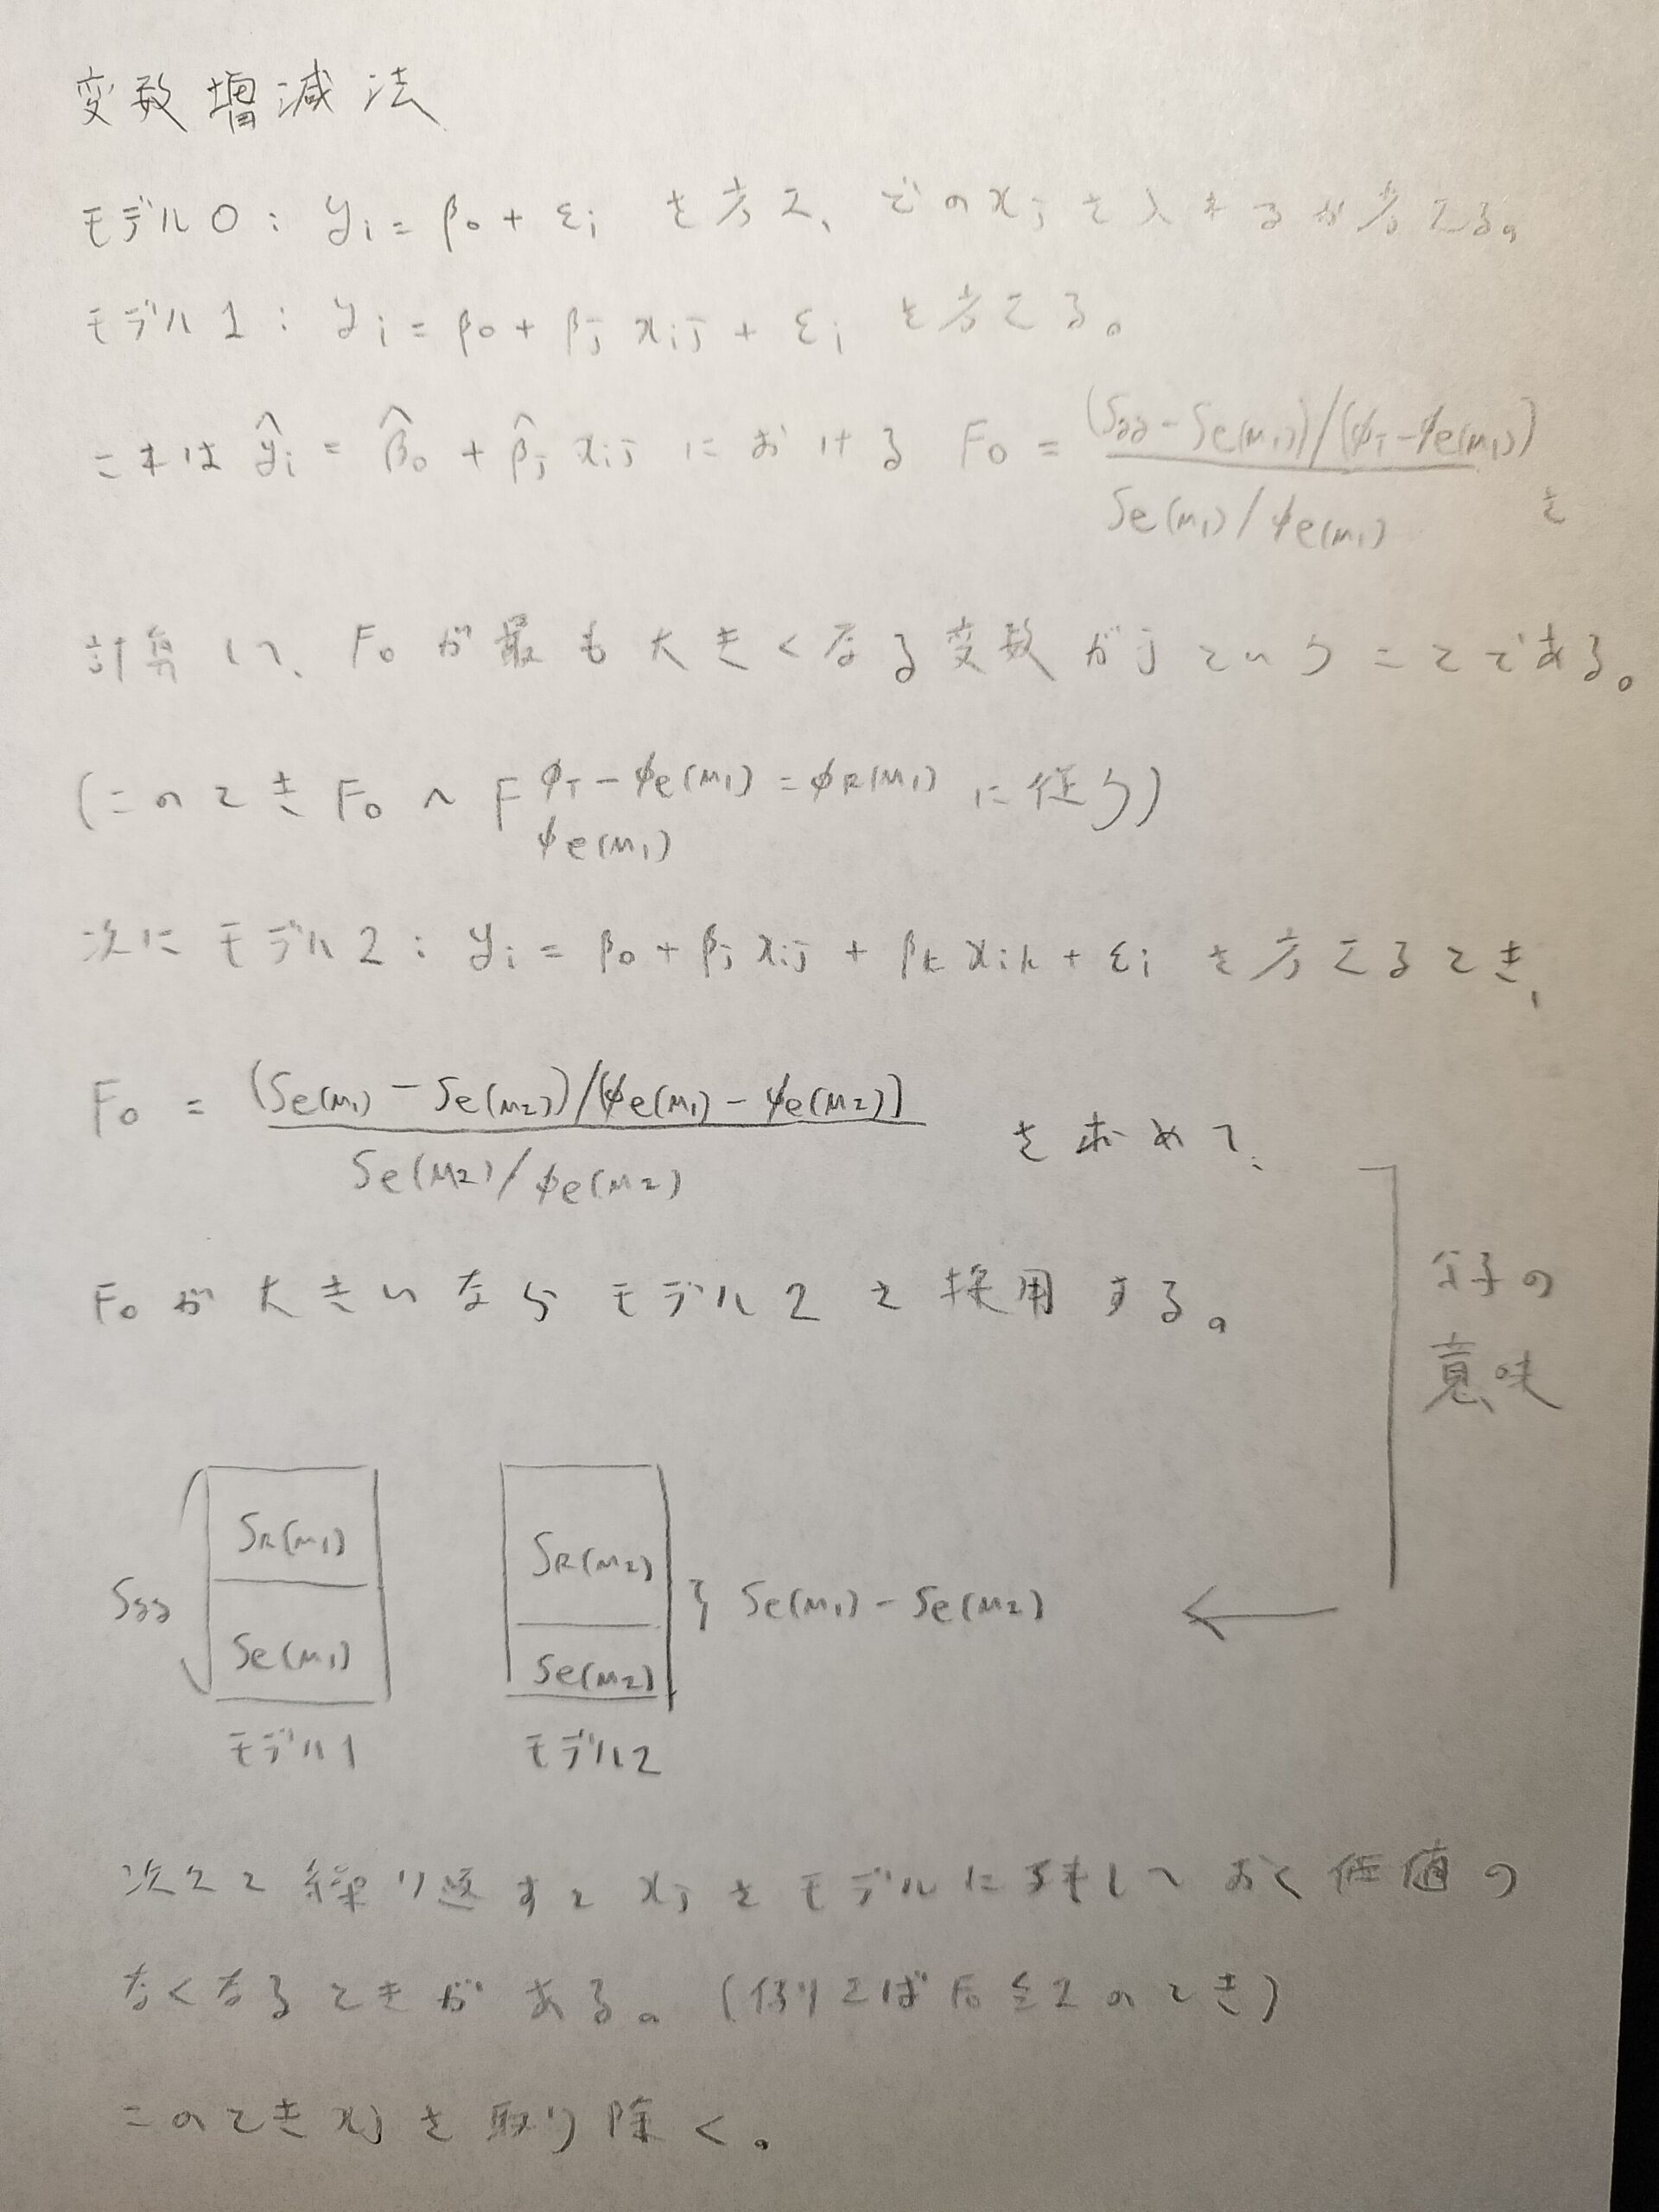 変数増減法
モデル0: yi = β0 + εi を考え、どのxjを入れるか考える。
モデル1: yi = β0 + βj xij + εi を考える。
これは ŷi = β̂0 + β̂j xij における F0 = (Syy - Se(M1))/(φT - φe(M1)) / Se(M1)/φe(M1) を
計算して、F0が最も大きくなる変数がjということである。
(このとき F0 ~ F φT - φe(M1) = φR(M1) に従う)
φe(M1)
次に モデル2: yi = β0 + βj xij + βk xik + εi を考えるとき、
F0 = (Se(M1) - Se(M2))/(φe(M1) - φe(M2)) / Se(M2)/φe(M2) を求めて、
F0が大きいならモデル2を採用する。
分子の
意味
Syy
SR(M1)
Se(M1)
モデル1
SR(M2)
Se(M2)
モデル2
} Se(M1) - Se(M2)
←
次々と繰り返すとxjをモデルに残しておく価値の
なくなるときがある。(例えばF0≦2のとき)
このときxjを取り除く。